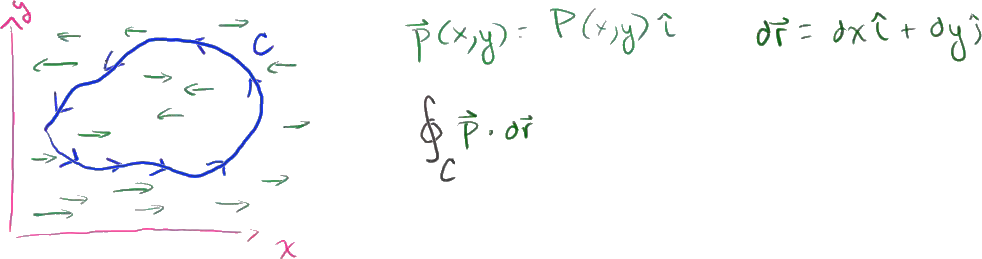 y
C
x
p⃗(x,y) = P(x,y) î
dr⃗ = dx î + dy ĵ
∮_C p⃗ · dr⃗